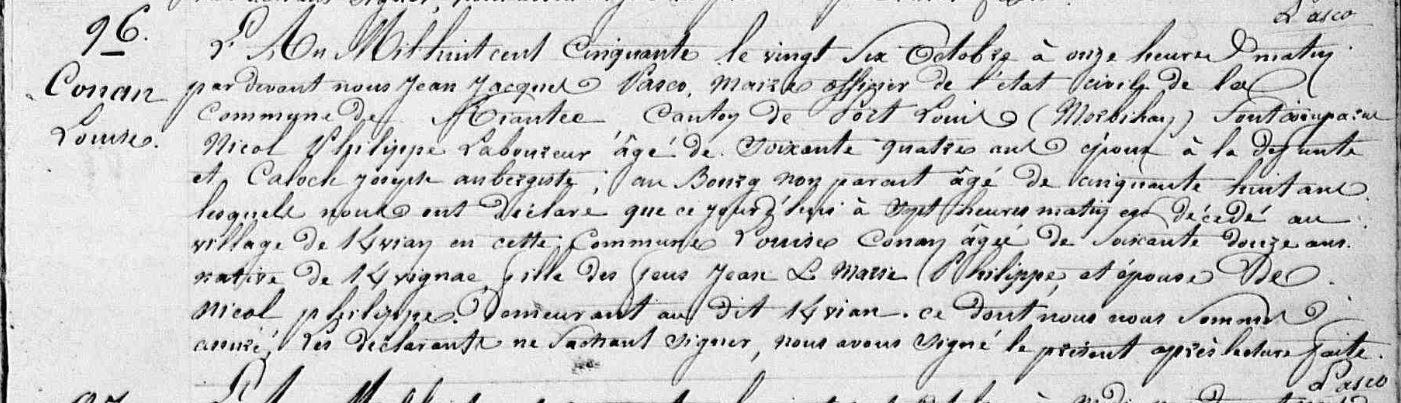 Pasco
96.
Conan
Louise.
L'An Mil huit cent Cinquante le vingt Six Octobre à onze heures du matin
par devant nous Jean Jacques Pasco, Maire officier de l'état civil de la
Commune de Riantec Canton de Port Louis (Morbihan) Sont comparus
Nicol Philippe Laboureur âgé de Soixante quatre ans époux à la defunte
et Caloch joseph aubergiste, au Bourg non parant âgé de cinquante huit ans
lesquels nous ont déclaré que ce jourd'hui à Sept heures matin est décédé au
village de Kvian en cette Commune Louise Conan âgée de Soixante douze ans.
native de Kvignac fille des feus Jean & Marie Philippe, et épouse de
Nicol philippe. Demeurant au dit Kvian. ce dont nous nous Sommes
assuré, Les déclarants ne Sachant Signer, nous avons Signé le présent après lecture faite.
Pasco